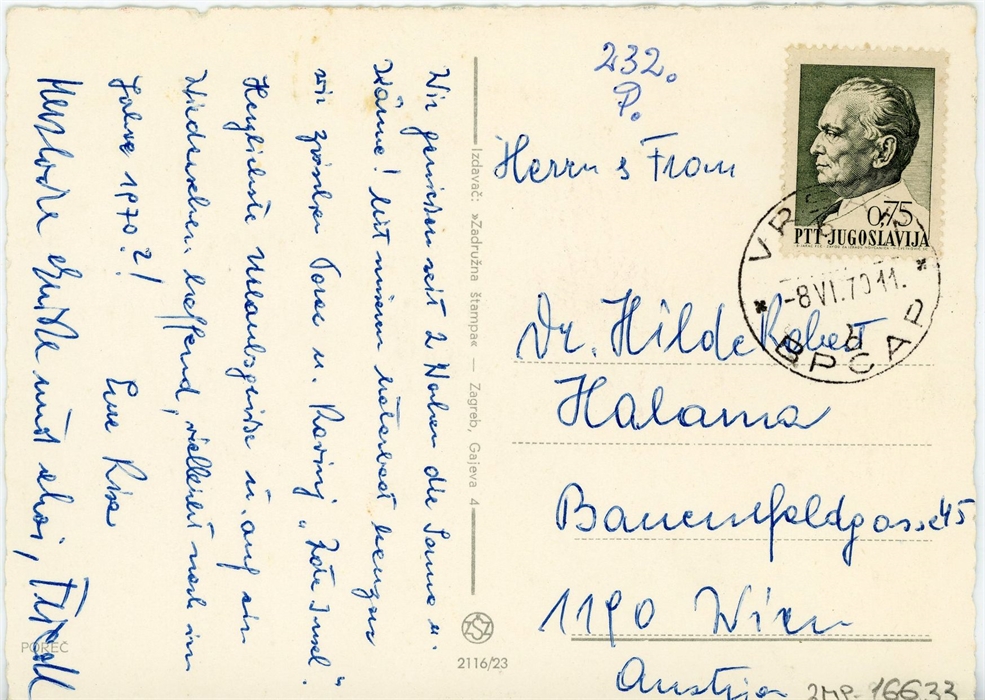 Wir genießen seit 2 Wochen die Sonne u.
Wärme! Mit unserem Motorboot kreuzen
wir zwischen Porec u. Rovinj „Rote Insel".
Herzlichste Urlaubsgrüße u. auf ein
Wiedersehen hoffend, vielleicht noch im
Jahre 1970?!
Eure Risa
Herzliche Grüße und ahoi,
POREČ
Izdavač: »Zadružna štampa« — Zagreb, Gajeva 4
ZSZ
2116/23
232.
P.
Herrn & Frau
Dr. Hilde Robert
Halama
Bauernfeldgasse 45
1190 Wien
Austria
0,75
PTT-JUGOSLAVIJA
VRSAR
-8VI.70 11.
b
ВРСАР
2MP-16633